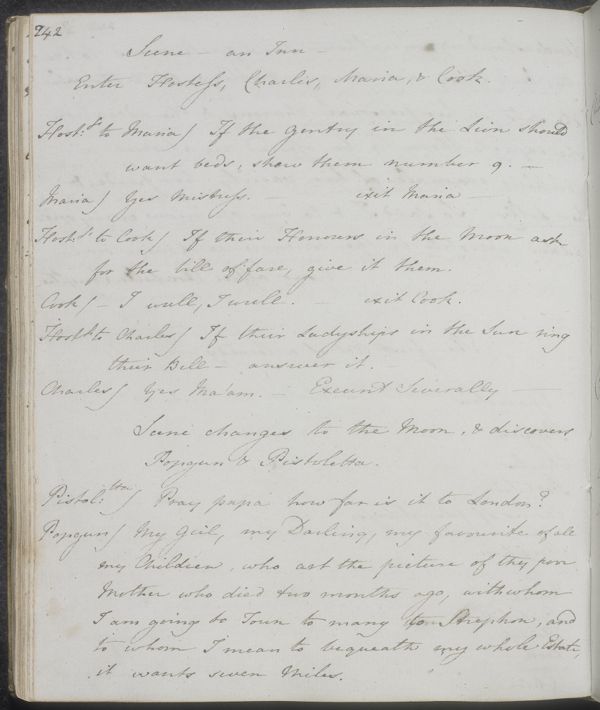 242
Scene – an Inn –
Enter Hostess, Charles, Maria, & Cook.
Host:ss to Maria) If the Gentry in the Lion should
want beds, shew them number 9. –
Maria) Yes Mistress. – exit Maria –
Host:ss to Cook) If their Honours in the Moon ask
for the bill of fare, give it them.
Cook) – I wull, I wull. – exit Cook.
Host:ss to Charles) If their Ladyships in the Sun ring
their Bell – answer it. –
Charles) Yes Ma'am. – Exeunt Severally –
Scene changes to the Moon, & discovers
Popgun & Pistoletta.
Pistol:tta) Pray papa how far is it to London?
Popgun) My Girl, my Darling, my favourite of all
my Children, who art the picture of thy poor
Mother who died two months ago, with whom
I am going to Town to marry to Strephon, and
to whom I mean to bequeath my whole Estate,
it wants seven Miles.